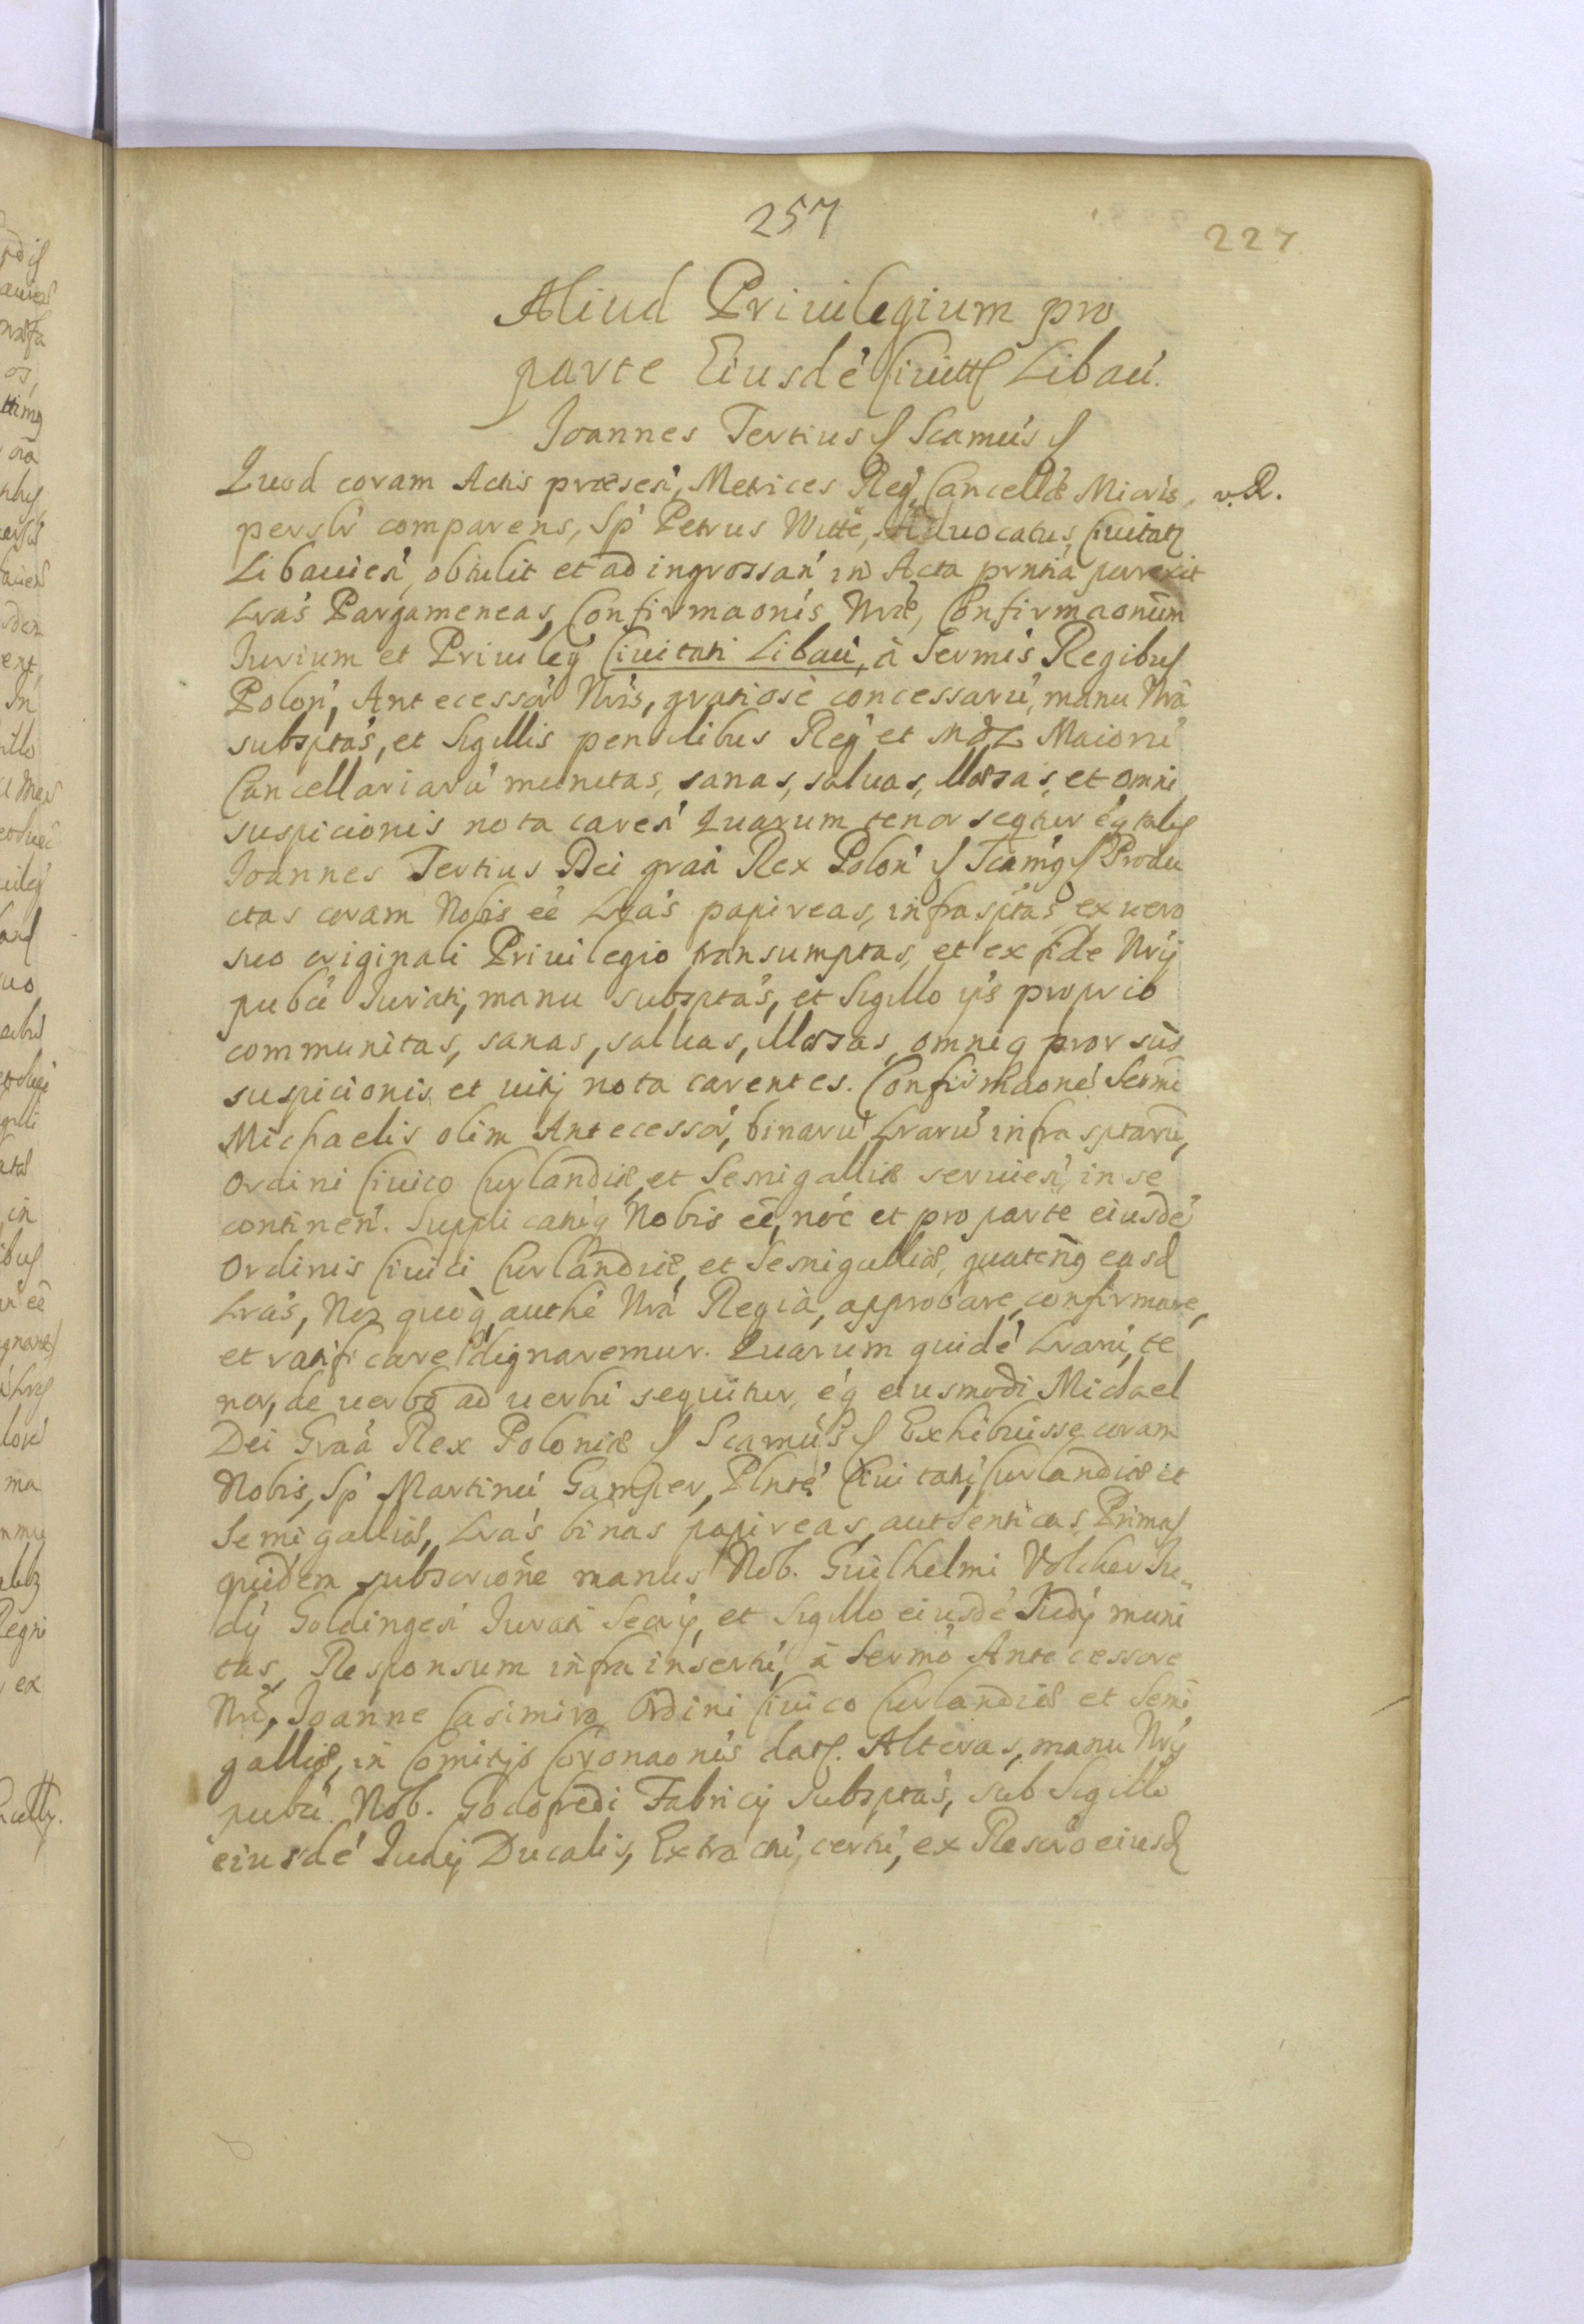 257
227
Aliud Priuilegium pro
parte Eiusdé Ciuitt Libaú.
Joannes Tertius Scamús
Quod coram Actis præseń, Metrices Reǵ, Cancellæ Mioris, v. R.
persłr comparens, Sp Petrus Witte, Aduocatus, Ciuitatz
Libauień, obtulit et ad ingrossań in Acta prntia porrexit
Lrás Pargameneas, Confirmaonis Nræ, Confirmaonum
Jurium et Priuileǵ Ciuitati Libaú, à Sermis Regibus
Poloń, Antecessoŕ Nris, gratiosè concessarú, manu Nrá
subsptás, et Sigillis pensilibus Reǵ et MDL Maiorú
Cancellariarú munitas, sanas, saluas, illæsas, et omni
suspicionis nota careń Quarum tenor seqtur éq talis
Joannes Tertius Dei graá Rex Poloń Scamq Produ
ctas coram Nobis eé Lrás papireas, infrasptás, ex uero
suo originali Priuilegio transumptas, et ex fide Nrij
pubci Jurati, manu subsptás, et Sigillo ijs proprio
communitas, sanas, saluas, illæsas, omniq prorsùs
suspicionis et uitij nota carentes. Confirmaoné Sermi
Michaelis olim Antecessoŕ, binarú Lrarú infrasptarú,
Ordini Ciuico Curlandiæ, et Semigalliæ seruień, in se
contineń. Supplicatúq Nobis eé, noé et pro parte eiusdé
Ordinis Ciuici Curlandiæ, et Semigalliæ, quatenq easd
Lrás, Nos quoq authé Nrá Regià, approbare, confirmare,
et ratificare dignaremur. Quarum quidé Lrarú, te
nor, de uerbo ad uerbú sequitur, éq eiusmodi Michael
Dei Graá Rex Poloniæ Scamús Exhibuisse coram
Nobis, Sp Martinú Gamper, Plnté Ciuitatú, Curlandiæ et
Semigalliæ, Lrás binas papireas, authenticas, Primas
quidem subscrioné manus Nob. Guilhelmi Volcher Ju„
dij Goldingeń Jurati Secrij, et Sigillo eiusdé Judij muni
tas, Responsum infra insertú, à Sermo Antecessore
Nro, Joanne Casimiro, Ordini Ciuico Curlandiæ et Semi
galliæ, in Comitijs Coronaonis dat. Alteras, manu Nrij
pubci. Nob. Godofredi Fabricij Subsptás, sub Sigillo
eiusdé Judij Ducalis, Extractú, certú, ex Rescro eiusd